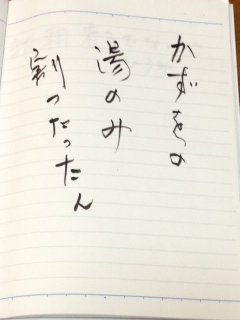 かずをの
湯のみ
割つたつたん